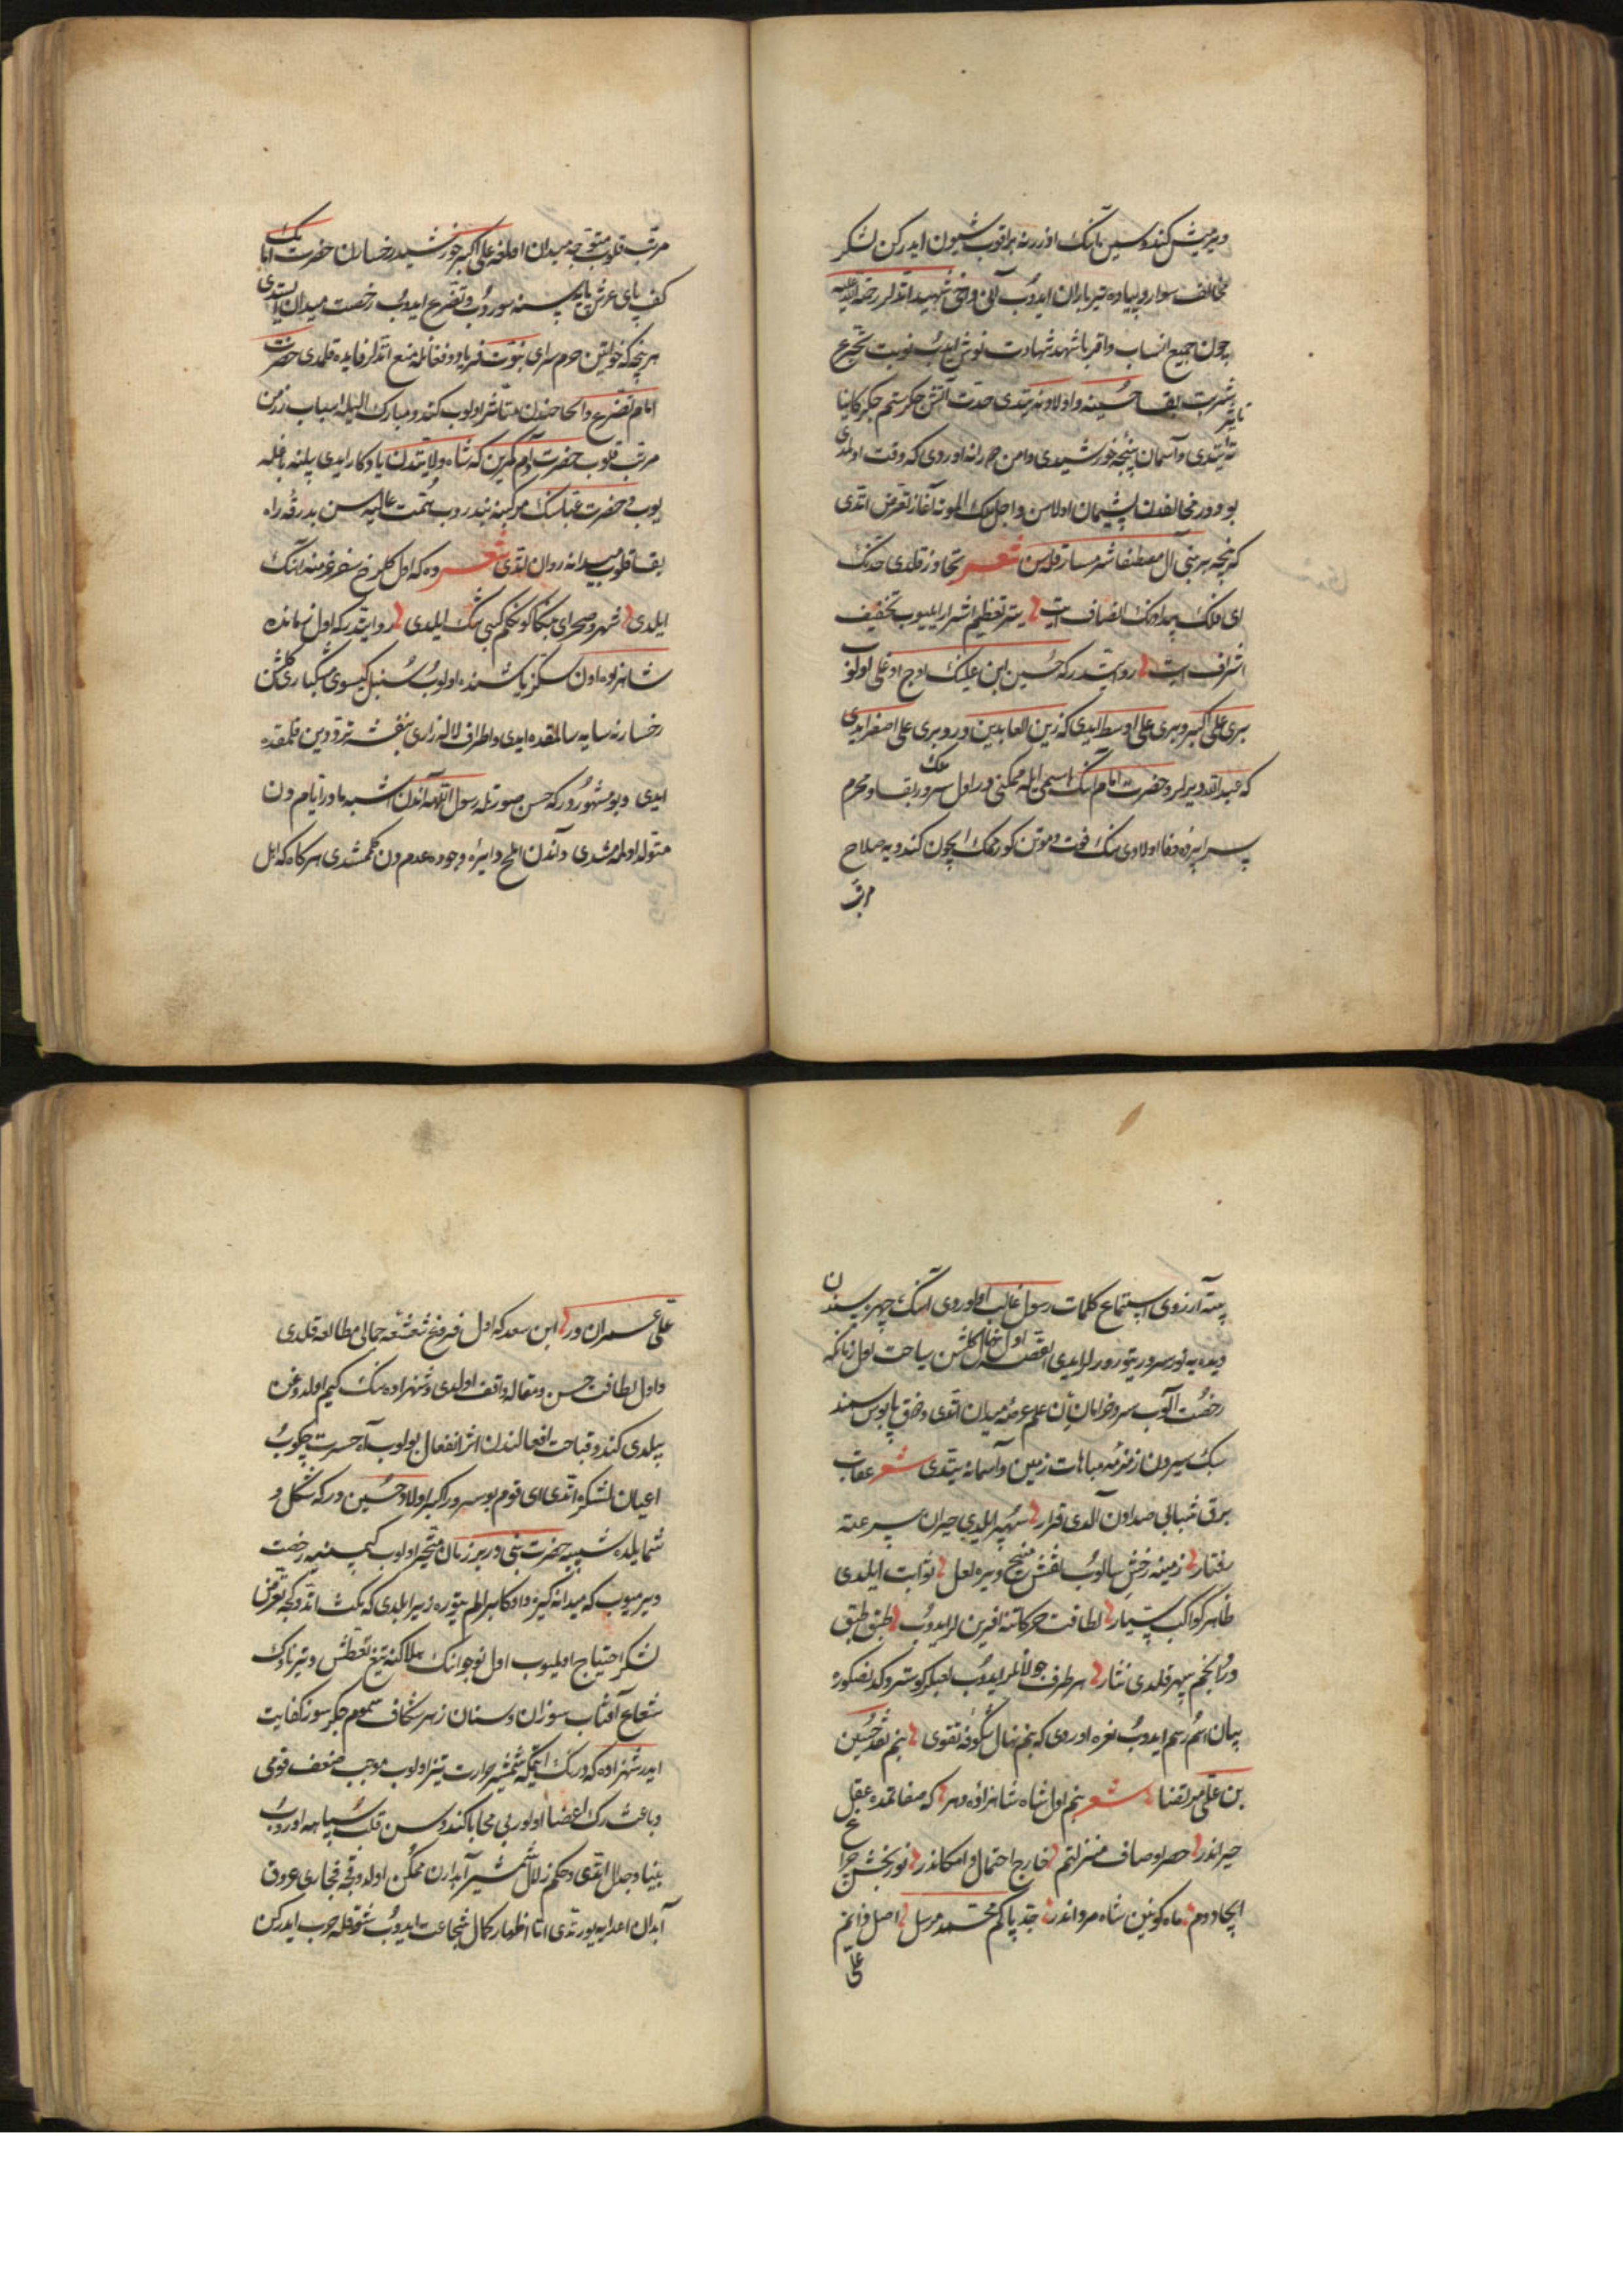 ویرمیش کندوسین آنک اوزرینه براقوب شیون ایدرکن لشکر
مخالف سوار و پیاده تیرباران ایدوب آنی دخی شهید اتدیلر رحمة الله علیه
چون جمیع انساب و اقربا شهد شهادت نوش ایدوب نوبت تجرع
شربت بقا حسینه و اولادینه یتدی حدت آتش جکر ستم جکر کایناته تاثیر
ایتدی و آسمان پنجه خورشیدی دامن اوردی که وقت اولدی
بو دور مخالفدن پشیمان اولاسن و اجل آغاز تعرض اتدی
که نیجه بر بنی آل مصطفا شرمسار قیلاسن شعر تجاوز قلدی حددنک
ای فلک بیدادنک انصاف ایت یتر تعظیم اشرار ایلیوب تخفیف
اشراف ایت روایتدر که حسین ابن علینک اوچ اوغلی اولوب
بری علی اکبر و بری علی اوسط ایدی که زین العابدین در و بری علی اصغر ایدی
که عبدالله دیرلر و حضرت امامنک اسمی ایله مکنی در اول سرور بقا و محرم
سراپرده وفا اولادی نک فوت و موتن کورمک ایچون کندویه صلاح
مرتب
مرتب قلوب متوجه میدان اولدقده علی اکبر خورشید رخساران حضرت امامنک
کف پای عرش پایه سنه یوز سوروب و تضرع ایدوب رخصت میدان ایستدی
هر نیجه که خواتین حرم سرای نبوت فریاد و فغانله منع اتدیلر فایده قلمدی حضرت
امام تضرع و الحاحندن متاثر اولوب کندو مبارک الیله اسباب رزمن
مرتب قلوب حضرت آدم کمرین که شاه ولایتدن یادکار ایدی بیلنه باغله
یوب و حضرت عباسنک مرکبنه بندروب همت عالیه سن بدرقه راه
بقا قلوب میدانه روان اتدی شعر وه که اول کلرخ سفر عزمنه آهنک
ایلدی شهر و صحرای بنکا کوکلم کبی تنک ایلدی روایتدر که اول زمانده
شاهزاده اون سکز یاشنده اولوب سنبل کیسوی مشکباری کلشن
رخسارنه سایه سالمقده ایدی و اطراف لاله زاری بنفشه تردن قلمقده
ایدی و بو مشهوردر که حسن صورتله رسول اللهه آندن اشبه مادر ایامدن
متولد اولمامشدی و آندن املح دایره وجوده عدمدن کلمشدی هرکاه که اهل
یتنه آرزوی استماع کلمات رسول غالب اولوردی آنک چهره سندن
دیده یه نور سرور یتورورلر ایدی القصه اول نهال کلشن سیاحت اول زمانکه
رخصت آلوب سرو خرامان علم عرصه میدان اتدی و ذوق پابوسند
سبک سیردن زمزمه مباهات زمین و آسمانه یتدی شعر عقاب
برق شبابی صدادن آلدی قرار سپهر ایلدی حیران سرعته
رفتار زمینه رخش سالوب نقش میخ ویره لعل ثوابت ایلدی
ظاهر کواکب سیار لطافت حرکاتنه آفرینلر ایدوب طبق طبق
در انجم سپهر قلدی نثار هر طرف جولانلر ایدوب
بیان اسم و رسم ایدوب نعره اوردی که بنم نهال شکوفه تقوی بنم نقد حسین
بن علی مرتضا شعر بنم اول شاه شاهزاده دهر که صفاتمده عقل
حیراندر حصر اوصاف منزلتم خارج احتمال و امکاندر نوربخش چراغ
ایجاددم ماه کونین شاه مرداندر جد پاکم محمد مرسل اصل ذاتم
علی
علی عمراندر ابن سعد که اول فروغ شعشعه جمالی مطالعه قلدی
و اول لطافت حسن و مقاله واقف اولدی و شهزاده نک کیم اولدوغن
بیلدی کندو قباحت افعالندن اثر انفعال بولوب آه حسرت چکوب
اعیان لشکره اتدی ای قوم بو سرور اکبر اولاد حسین در که شکل و
شمایلده شبیه حضرت نبی در بر زمان متحیر اولوب کیمسنیه رخصت
ویرمیوب که میدانه کیره و اوکا بر الم یتوره زیرا بلدی که مکث اتدوکجه تعرض
لشکر احتیاج اولمیوب اول نوجوانک هلاکنه تیغ تعطش و تیر ناوک
شعاع آفتاب سوزان و سنان زهر شکاف سموم جکرسوز کفایت
ایدر شهزاده که درنک اتمکه شمشیر حرارت تیز اولوب موجب ضعف قوی
و باعث رک اعضا اولور بی محابا کندوسن قلب سپاهه اوروب
بنیاد جدال اتدی و حکم زلال شمشیر آبدارن ممکن اولدوقجه مجاری عروق
ابدان اعدایه یورتدی اثنا اظهار کمال شجاعت ایدوب شوقله حرب ایدرکن